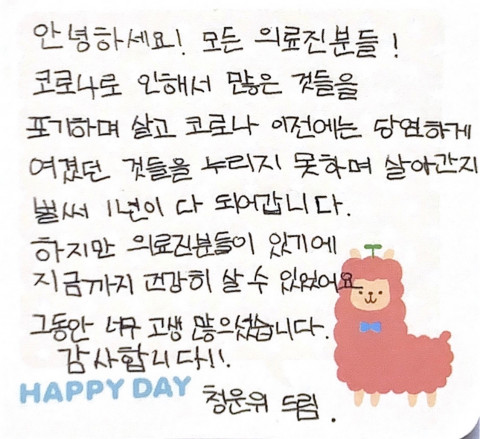 안녕하세요! 모든 의료진분들!
코로나로 인해서 많은 것들을
포기하며 살고 코로나 이전에는 당연하게
여겼던 것들을 누리지 못하며 살아간지
벌써 1년이 다 되어갑니다.
하지만 의료진분들이 있기에
지금까지 건강히 살 수 있었어요
그동안 너무 고생 많으셨습니다.
감사합니다!!.
HAPPY DAY
청운위 드림.